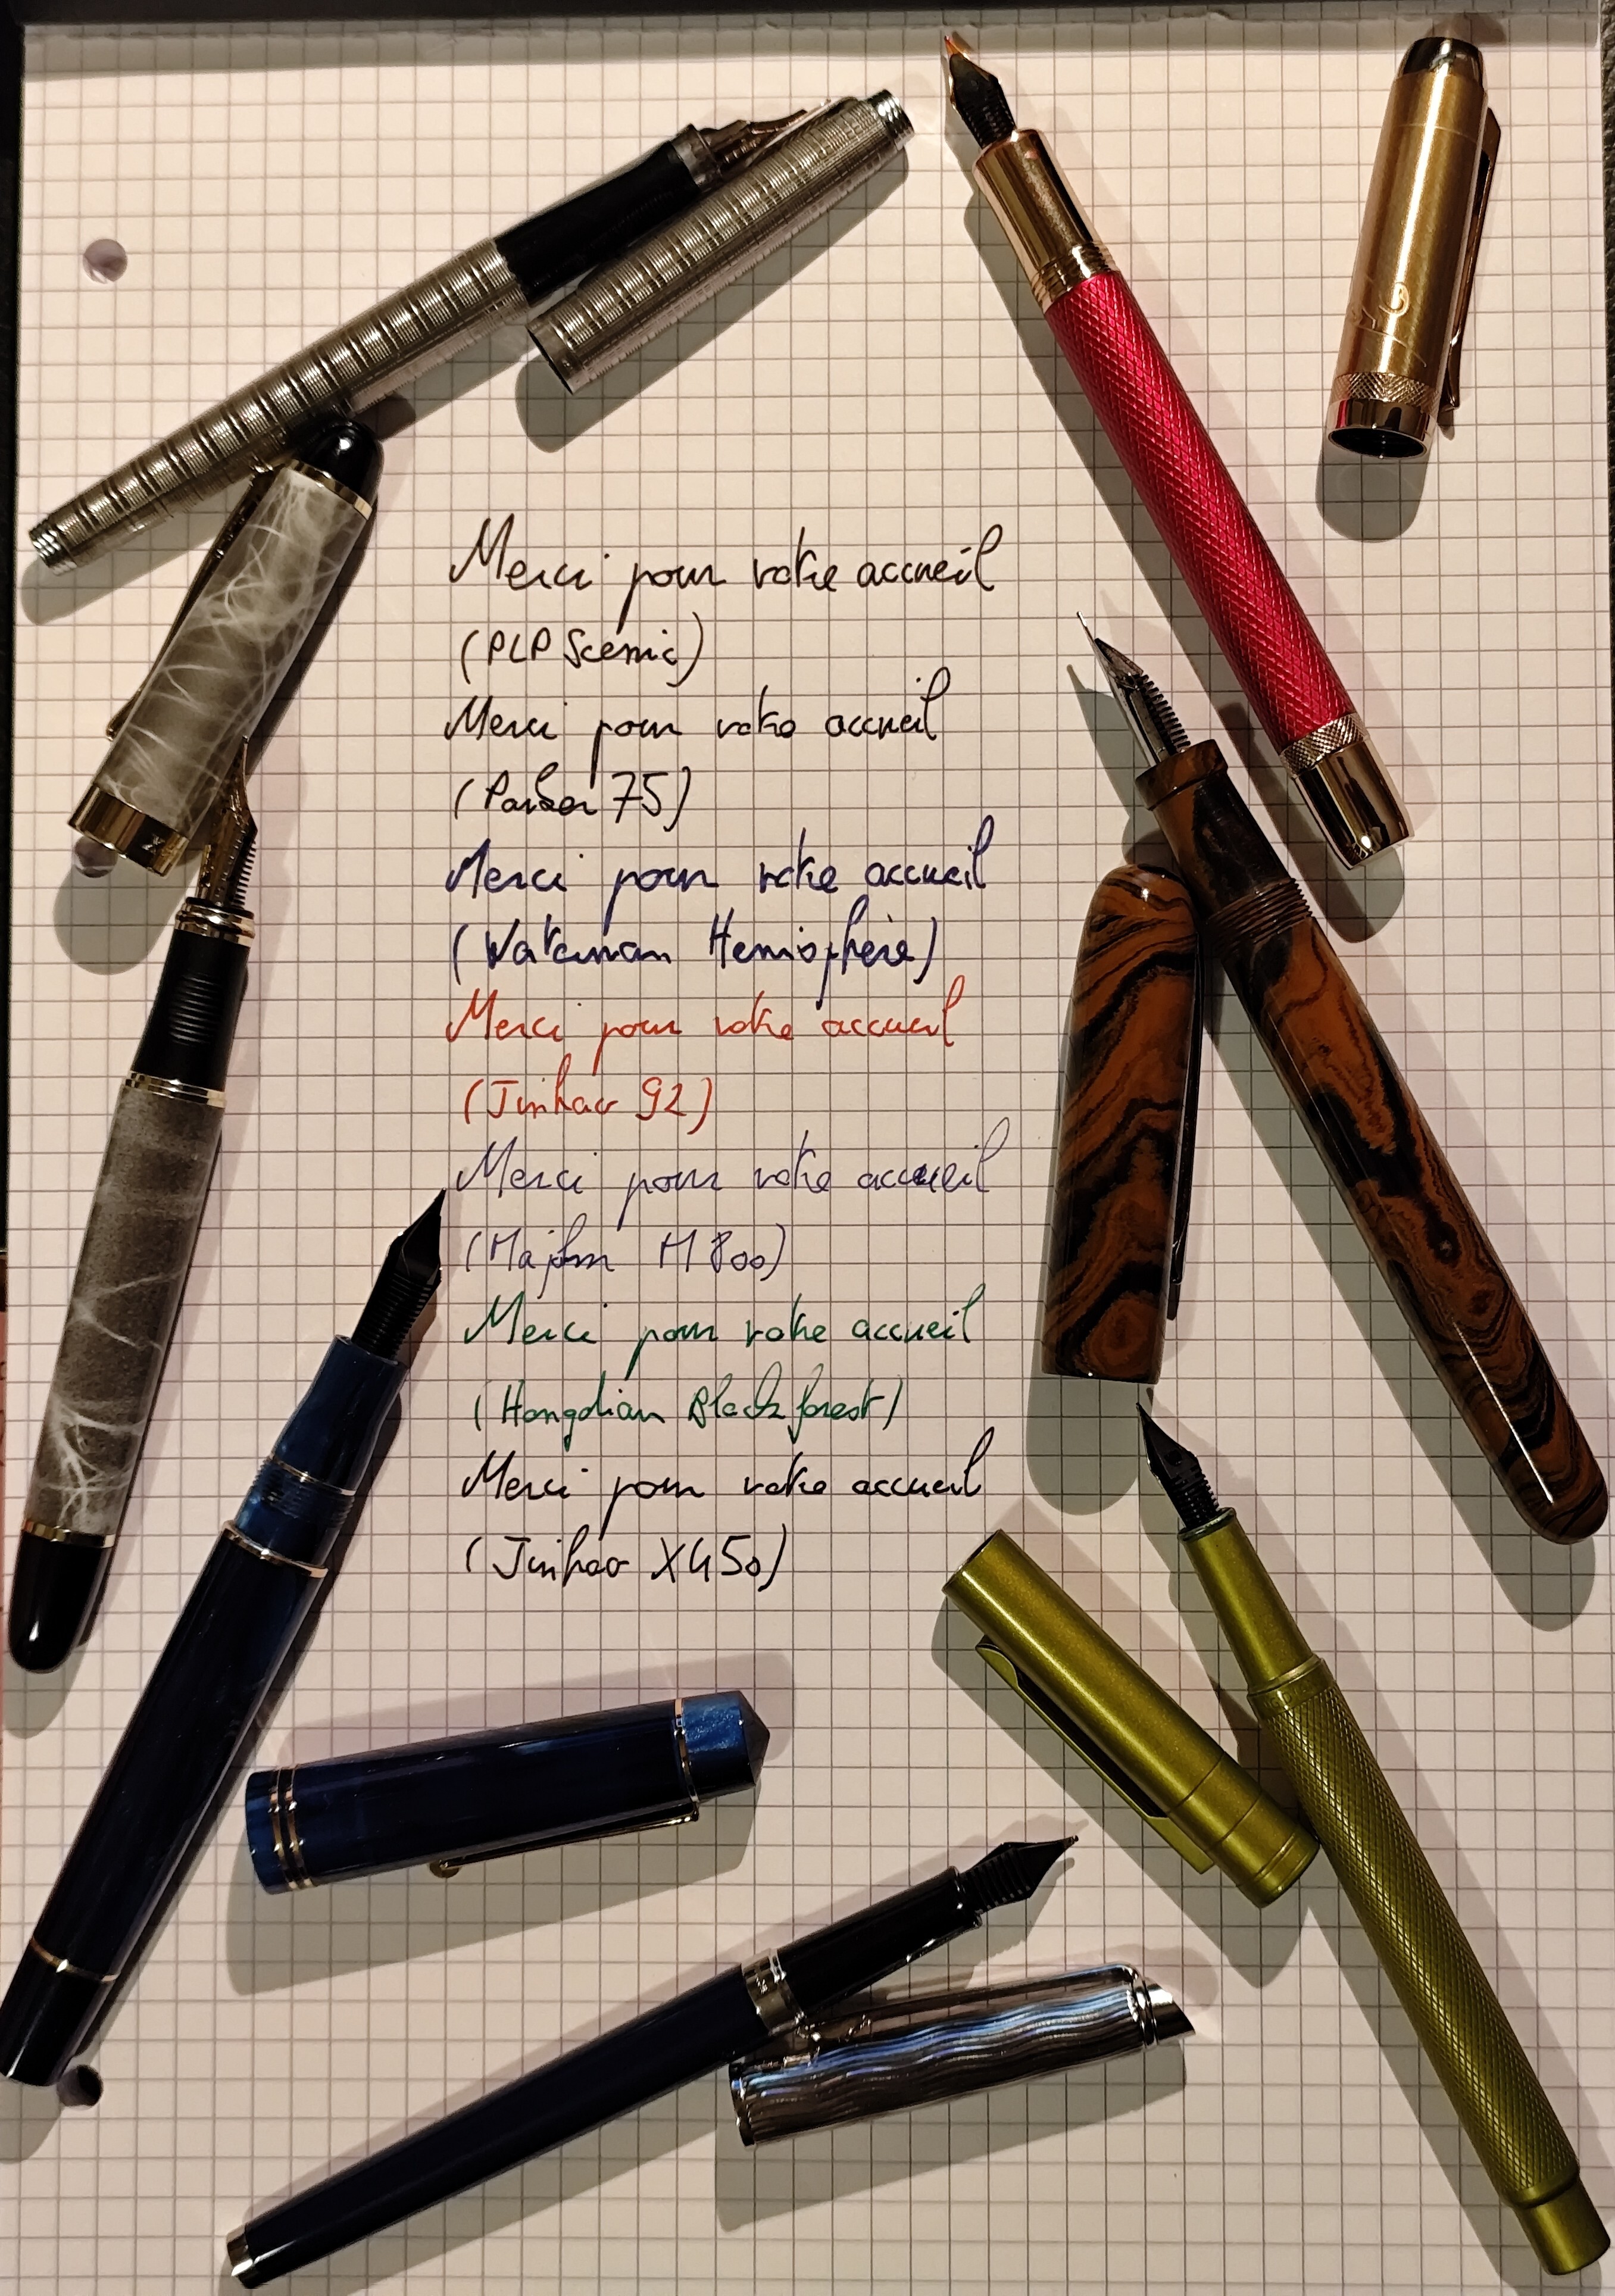 Merci pour votre accueil
(PLP Scenic)
Merci pour votre accueil
(Parker 75)
Merci pour votre accueil
(Waterman Hemisphère)
Merci pour votre accueil
(Jinhao 92)
Merci pour votre accueil
(Majohn M800)
Merci pour votre accueil
(Hongdian Black forest)
Merci pour votre accueil
(Jinhao X450)